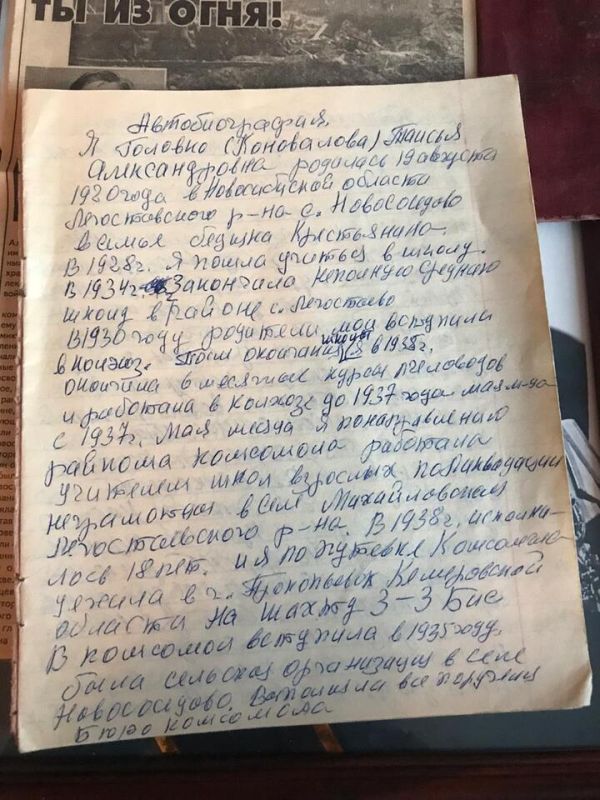 ТЫ ИЗ ОГНЯ!
Автобиография.
Я Головко (Коновалова) Таисья
Александровна родилась 19 августа
1920 года в Новосибской области
Легостаевского р-на с. Новососидово
в семье бедняка Крестьянина.
В 1928г. Я пошла учиться в школу.
В 1934г. Закончила неполную среднию
школу в районе с. Легостаево
В 1930 году родители мои вступили
в колхоз. После окончания школы я в 1938г.
окончила 6 месячные курсы пчеловодов
и работала в колхозе до 1937 года. мая м-ца
с 1937г. Мая месяца Я по направлению
райкома комсомола работала
учителем школ взрослых по ликвидации
неграмотных в селе Михайловском
Легостаевского р-на. В 1938г. исполни-
лось 18 лет. и я по путевке Комсомола
уехала в г. Прокопьевск Кемеровской
области на шахту 3-3 Бис
В комсомол вступила в 1935 году.
была сельская организация в селе
Новососидово. Выполняла все поручения
Бюро комсомола